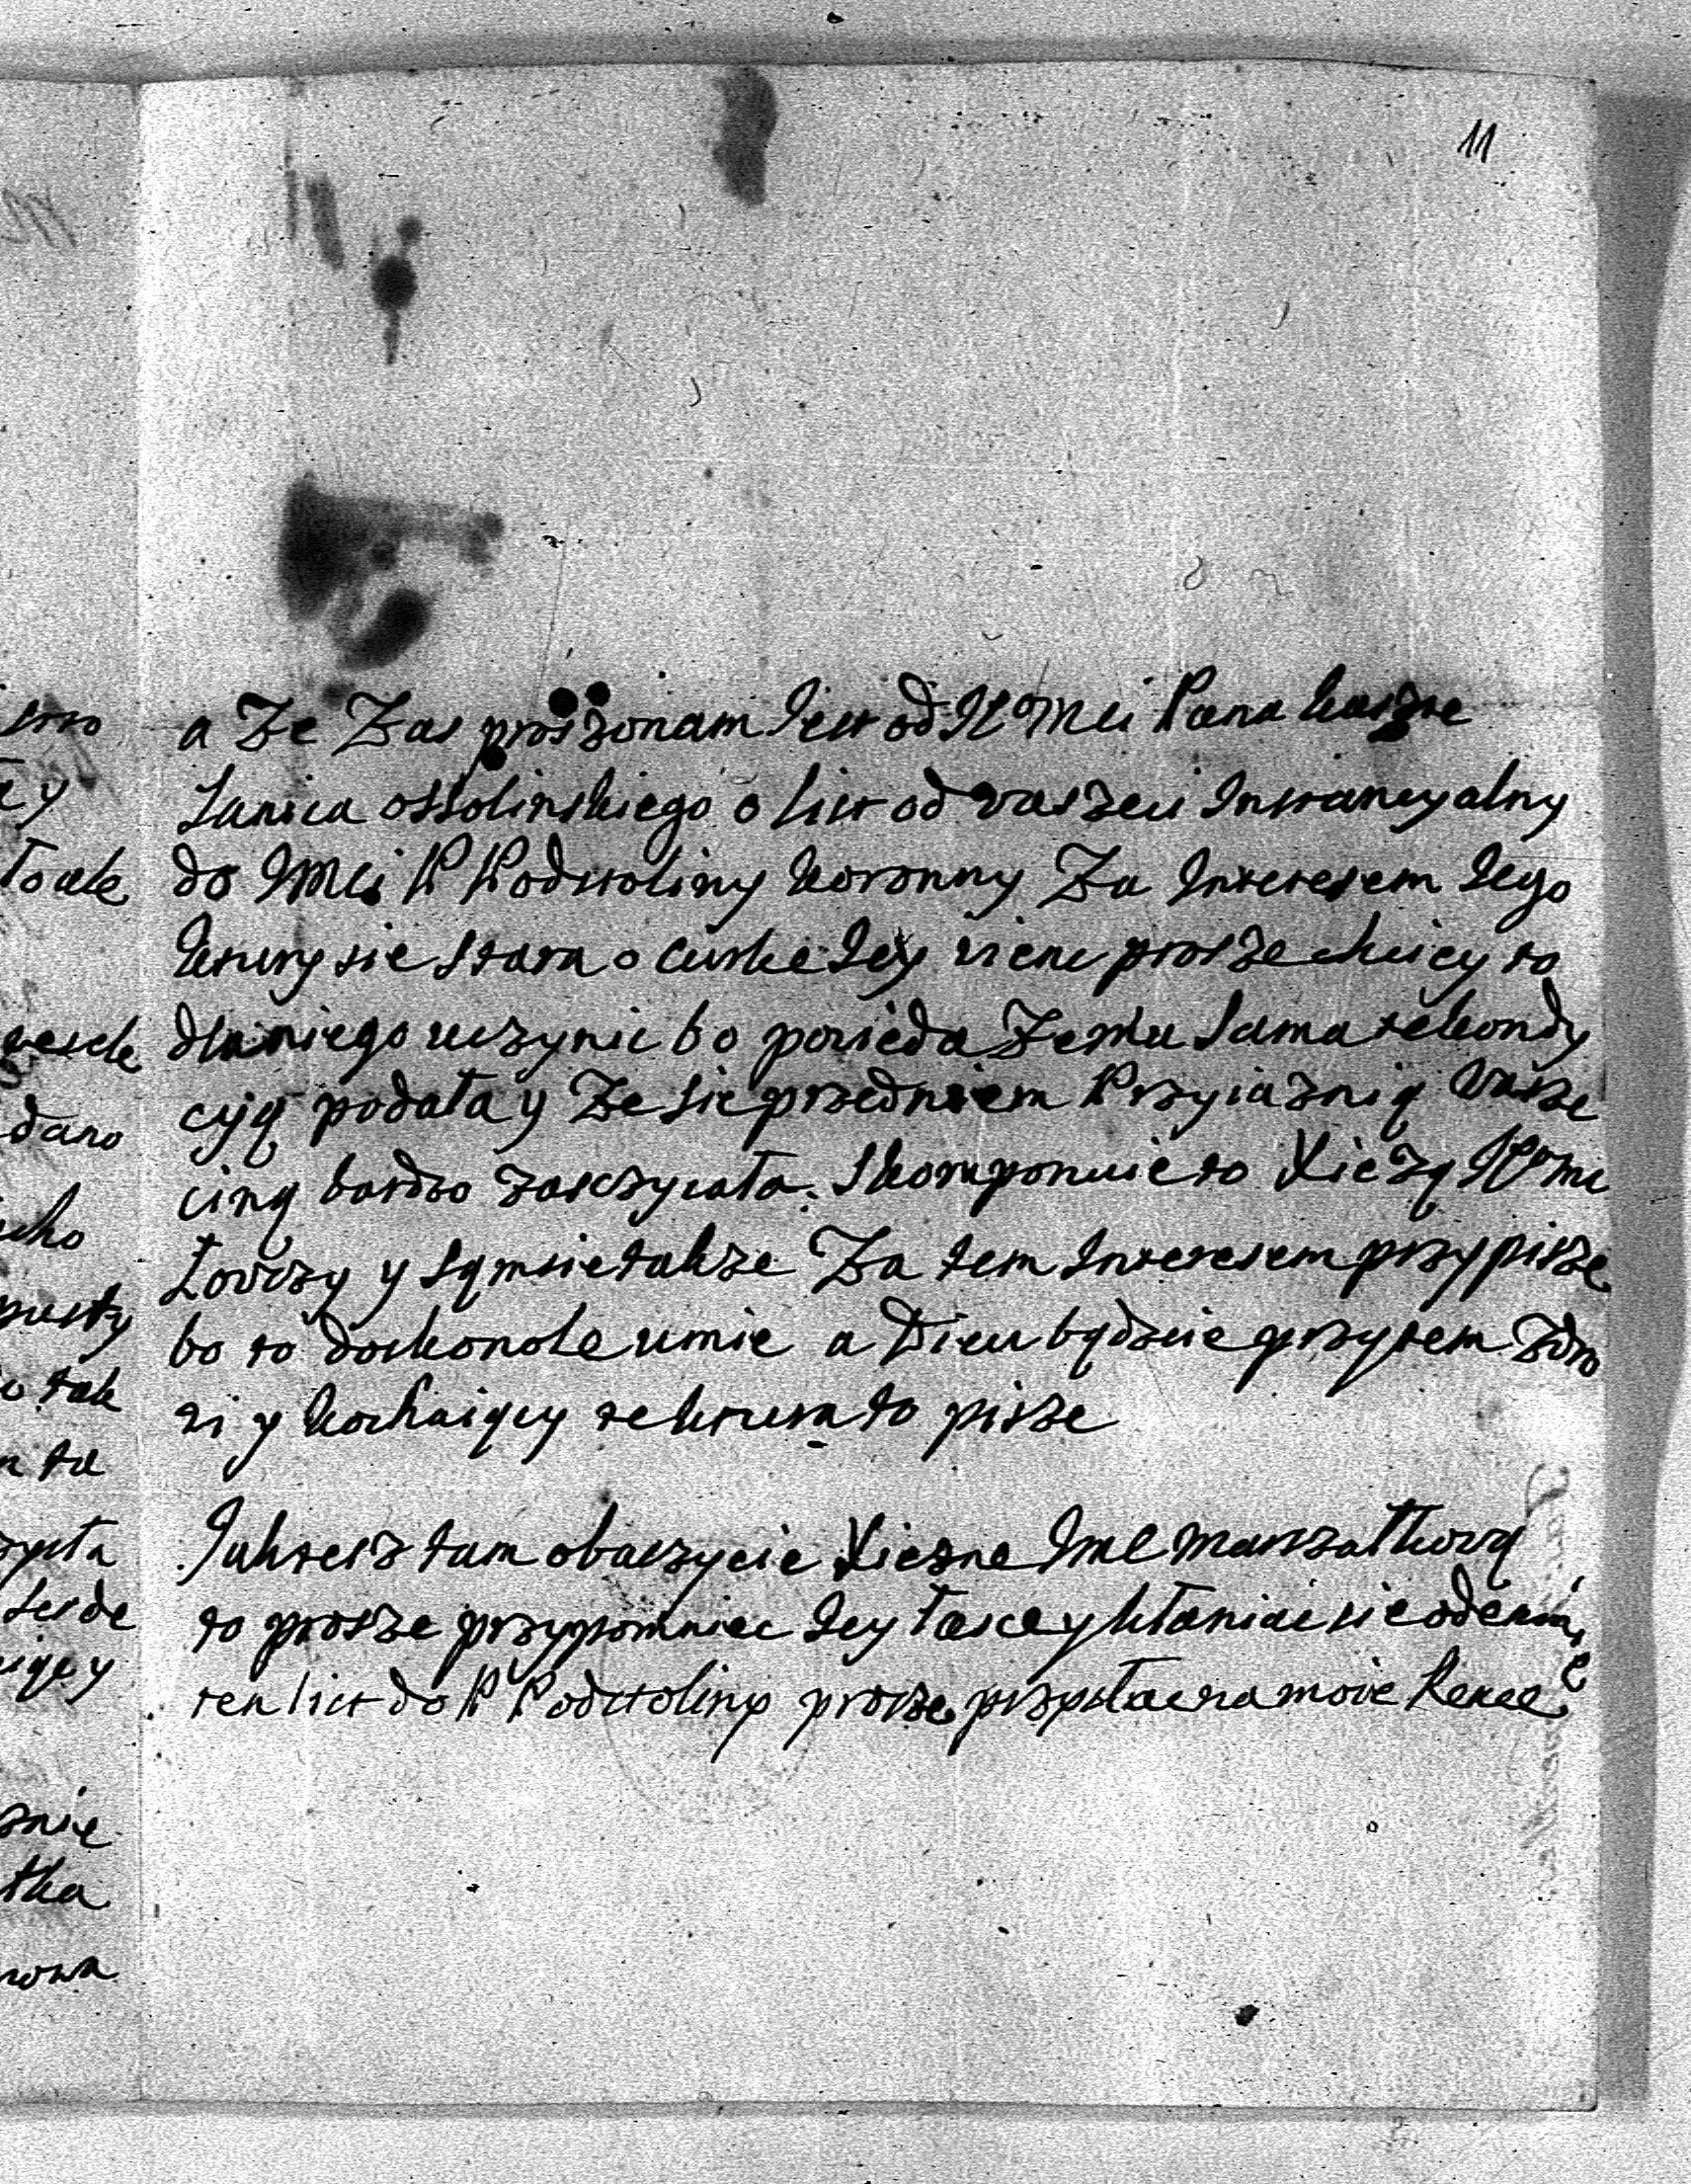 11
a Ze Zas proszonam Iest od IE Mci Pana kasze
Lanica ossolinskiego o list od vaszeci Instancyalny
do IMCi P Podstoliny koronny Za Interesem Iego
ktury sie stara o curke Iey vienc prosze chciey to
dla niego uczynic bo povieda Zemu Sama te kondy
cyią podała y Ze sie przedniem Przyiaznią vasze
ciną bardzo zasczycała. Skomponuie to Xiezą IE mc
Łovczy y sąmsie takze Za tem Interesem przypisze
bo to doskonole umie a Dieu bądzcie przytem zdro
vi y kochaiący te ktura to pisze
Iakresz tam obaczycie Xiezne Ime marszałkovą
to prosze przypomniec Iey łasce y kłaniac sie odemnie
ten list do P Podstoliny prosze przysłac na moie Rence